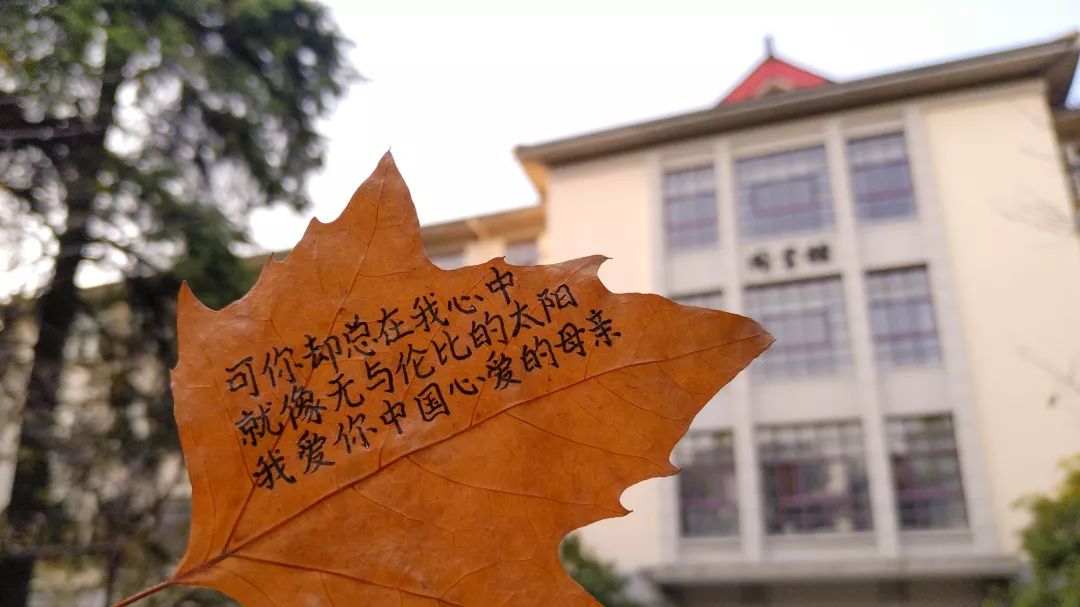 可你却总在我心中
就像无与伦比的太阳
我爱你中国心爱的母亲
图书馆